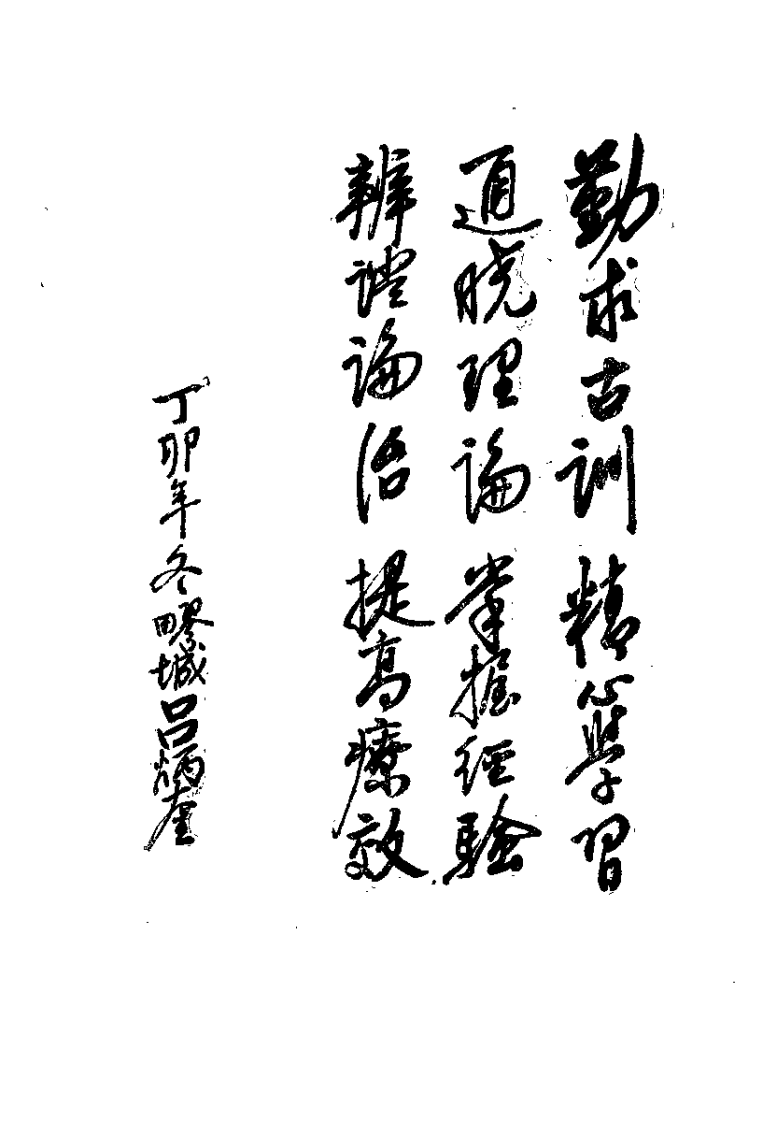 勤求古訓 精心學習
通曉理論 掌握經驗
辨證論治 提高療效
丁卯年冬疁城吕炳奎